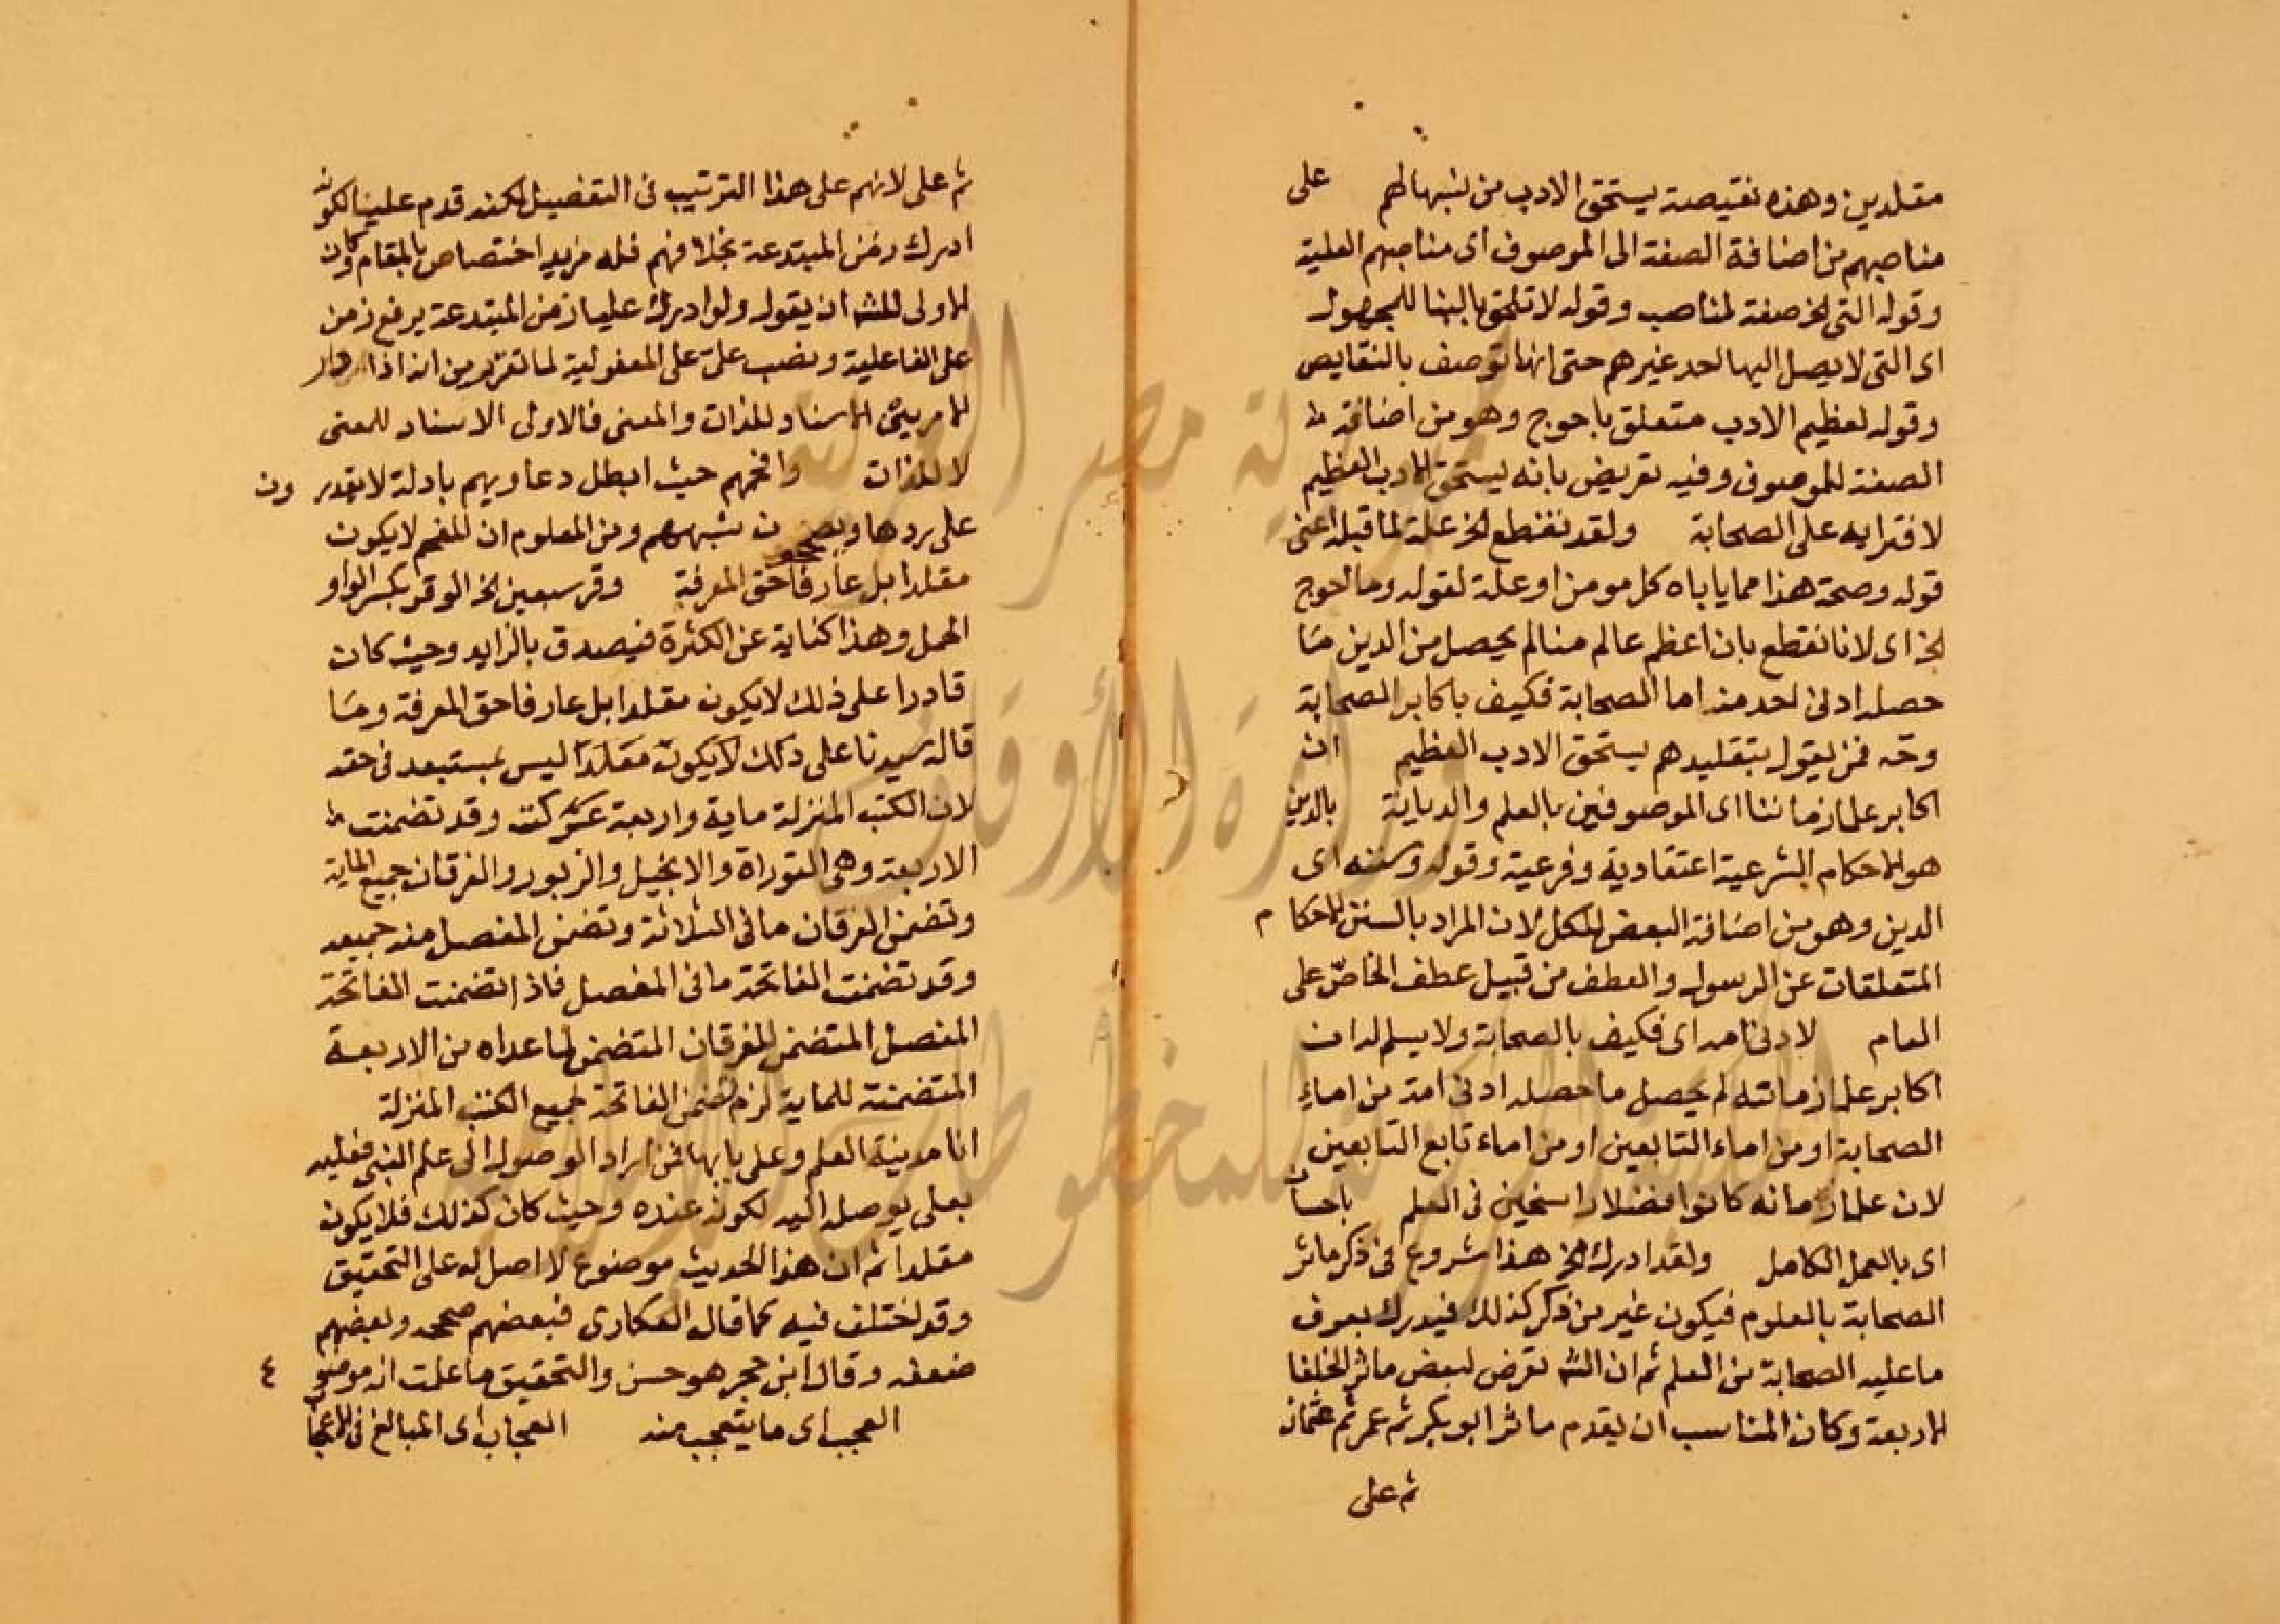 مقلدين وهذه نقيصة يستحق الادب من نسبها لهم على
مناصبهم من اضافة الصفة الى الموصوف اى مناصبهم العلية
وقوله التى الخ صفة لمناصب وقوله لا تلحق بالبنا للمجهول
اى التى لا يصل اليها احد غيرهم حتى انها توصف بالنقايص
وقوله لعظيم الادب متعلق باحوج وهو من اضافة
الصفة للموصوف وفيه تعريض بانه يستحق الادب العظيم
لافترايه على الصحابة ولقد نقطع الخ علة لما قبله اعنى
قوله وصحة هذا مما ياباه كل مومن او علة لقوله وما احوج
الخ اى لانا نقطع بان اعظم عالم منا لم يحصل من الدين ما
حصله ادنى احد من اما الصحابة فكيف باكابر الصحابة
وحـ فمن يقول بتقليدهم يستحق الادب العظيم ان
اكابر علما زماننا اى الموصوفين بالعلم والديانة بالدين
هو الاحكام الشرعية اعتقادية وفرعية وقوله وسننه اى
الدين وهو من اضافة البعض للكل لان المراد بالسنن الاحكام
المتعلقات عن الرسول والعطف من قبيل عطف الخاص على
العام لادنى امه اى فكيف بالصحابة ولا يسلم له ان
اكابر علما زمانه لم يحصل ما حصله ادنى امة من اماء
الصحابة او من اماء التابعين او من اماء تابع التابعين
لان علما زمانه كانوا فضلا راسخين فى العلم باحسان
اى بالعمل الكامل ولقد ادرك الخ هذا شروع فى ذكر ماثر
الصحابة بالعلوم فيكون غير من ذكر كذلك فيدرك بعرف
ما عليه الصحابة من العلم ثم ان الشـ تعرض لبعض ماثر الخلفا
الاربعة وكان المناسب ان يقدم ماثر ابو بكر ثم عمر ثم عثمان
ثم على
ثم على لانهم على هذا الترتيب فى التفضيل لكنه قدم عليا لكونه
ادرك زمن المبتدعة بخلافهم فله مزيد اختصاص بالمقام وكان
الاولى للشـ ان يقول ولو ادرك عليا زمن المبتدعة برفع زمن
على الفاعلية ونصب على على المفعولية لما تقرر من انه اذا دار
الامر بين الاسناد للذات والمعنى فالاولى الاسناد للمعنى
لا للذات وافحمهم حيث ابطل دعاويهم بادلة لا يقدرون
على ردها شبههم ومن المعلوم ان المفحم لا يكون
مقلدا بل عارفا حق المعرفة وقر سبعين الخ الوقر بكسر الواو
الحمل وهذا كناية عن الكثرة فيصدق بالزايد وحيث كان
قادرا على ذلك لا يكون مقلدا بل عارفا حق المعرفة وما
قاله سيدنا على ذلك لا يكون مقلدا ليس بمستبعد فى حقه
لان الكتب المنزلة ماية واربعة عشر كتب وقد تضمنت
الاربعة وهى التوراة والانجيل والزبور والفرقان جميع الماية
وتضمن الفرقان ما فى الثلاثة وتضمن المفصل منه جميعه
وقد تضمنت الفاتحة ما فى المفصل فاذا تضمنت الفاتحة
المفصل المتضمن للفرقان المتضمن لما عداه من الاربعة
المتضمنة للماية لزم تضمن الفاتحة لجميع الكتب المنزلة
انا مدينة العلم وعلى بابها فمن اراد الوصول الى علم النبى فعليه
بعلى يوصله اليه لكونه عنده وحيث كان كذلك فلا يكون
مقلدا ثم ان هذا الحديث موضوع لا اصل له على التحقيق
وقد اختلف فيه كما قال العكارى فبعضهم صححه وبعضهم
ضعفه وقال ابن حجر هو حسن والتحقيق ما علمت انه موضوع
العجب اى ما يتعجب منه العجاب اى المبالغ فى الاعجا